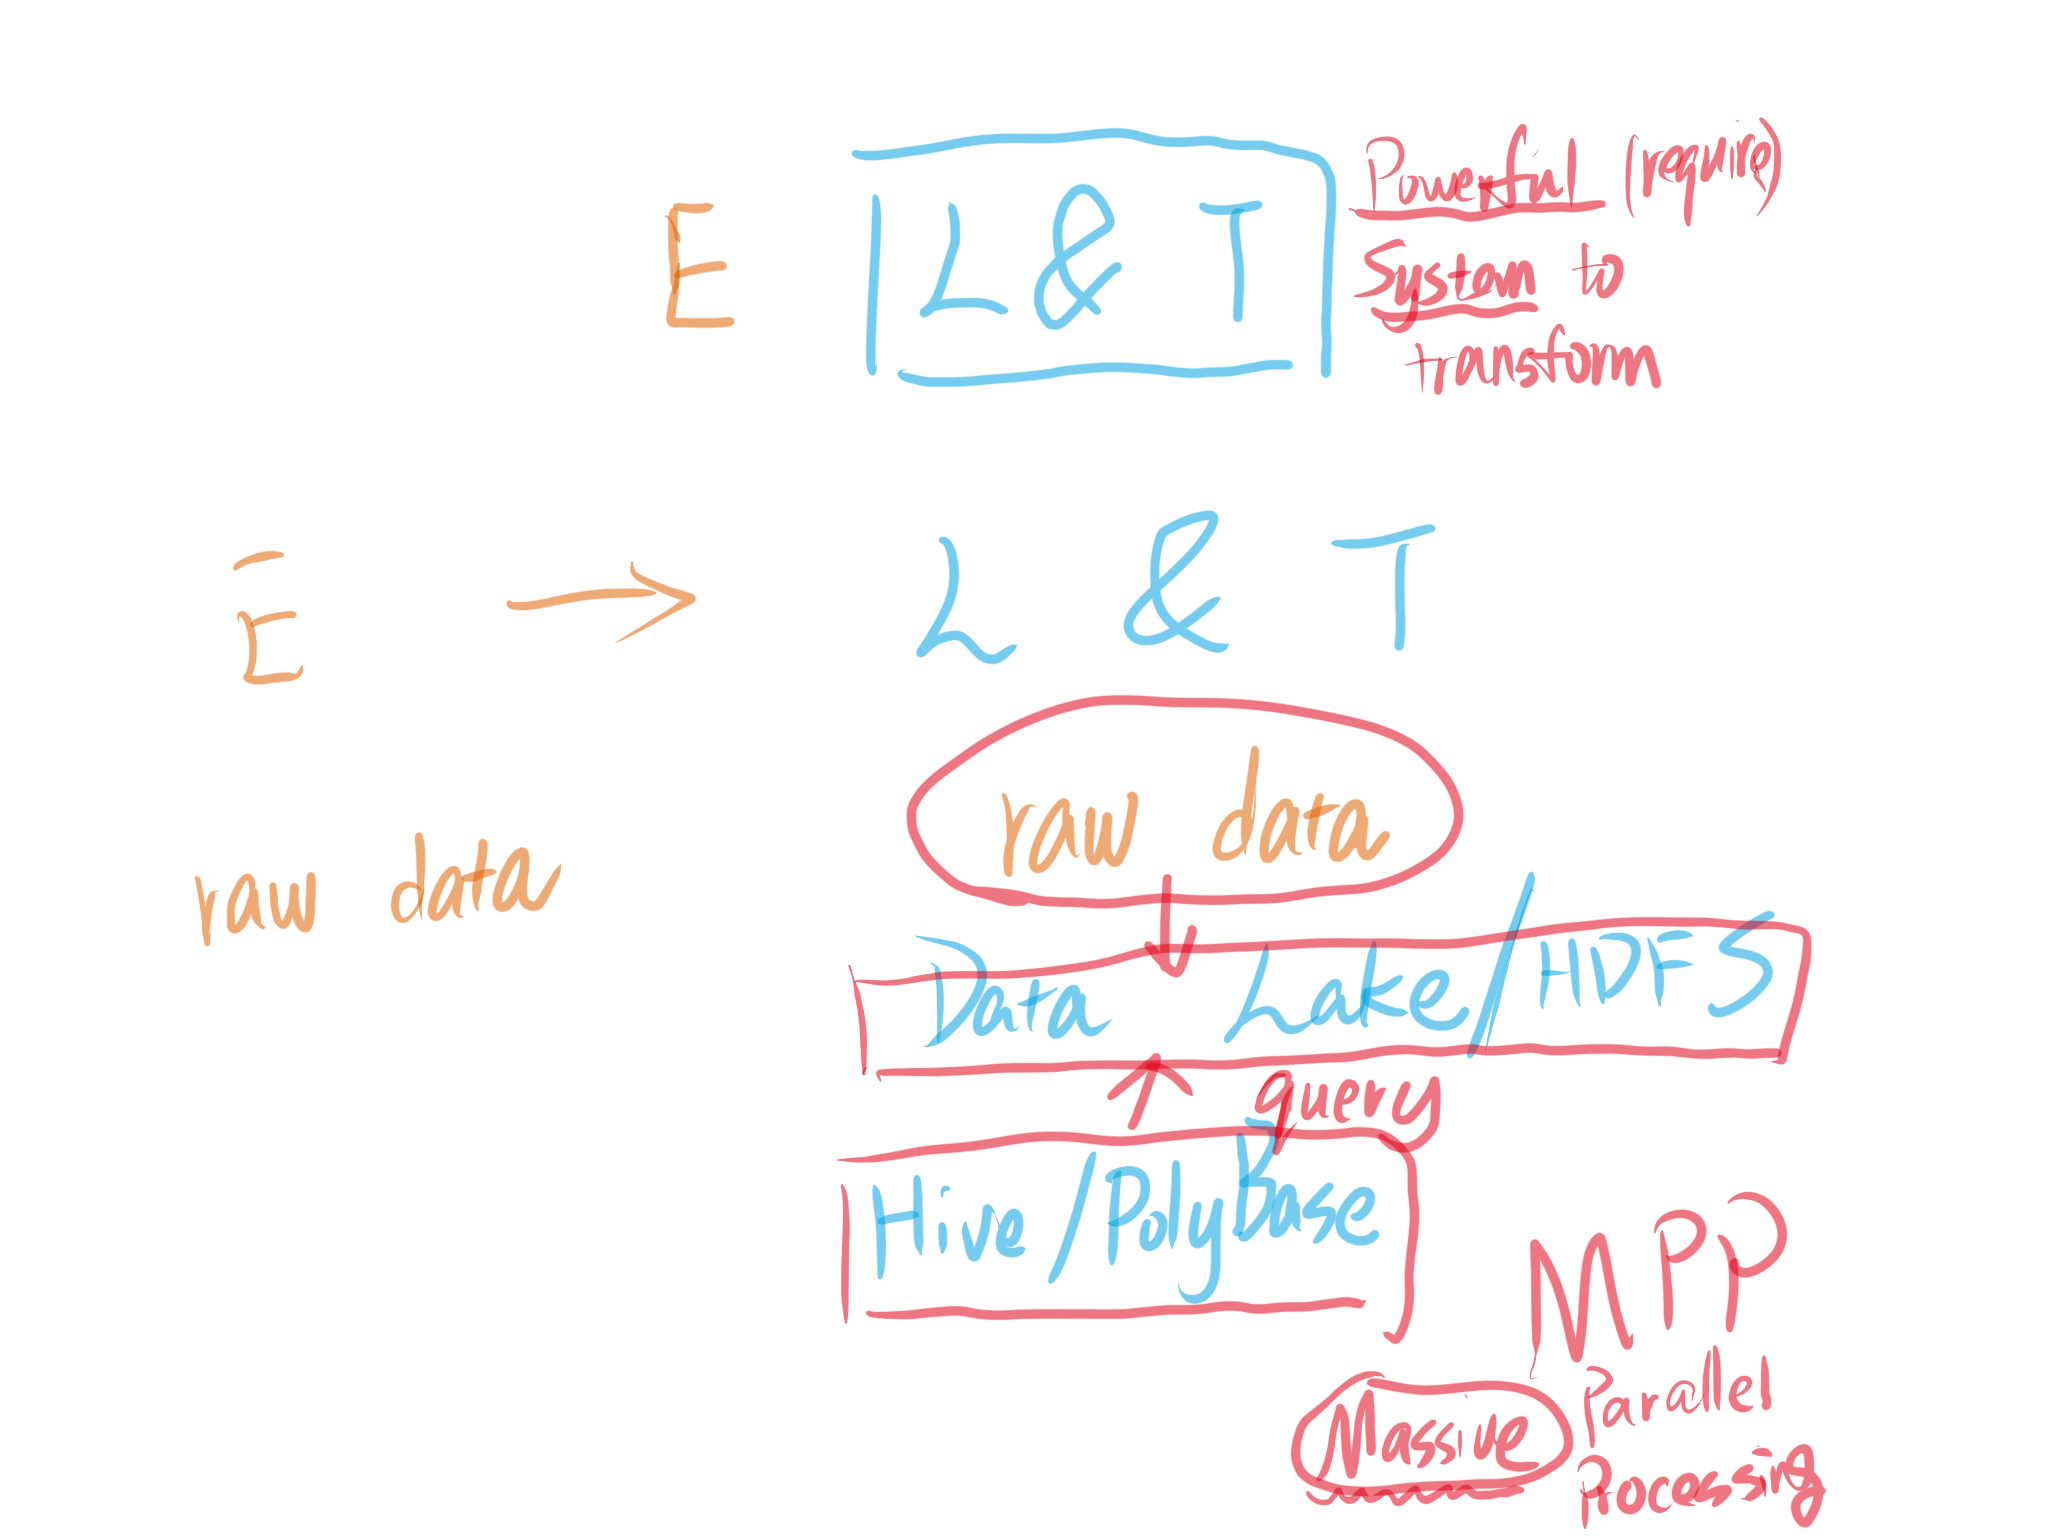 E L & T
Powerful (require)
System to
transform
E → L & T
raw data
raw data
Data Lake/HDFS
query
Hive/PolyBase
MPP
Massive
Parallel
Processing